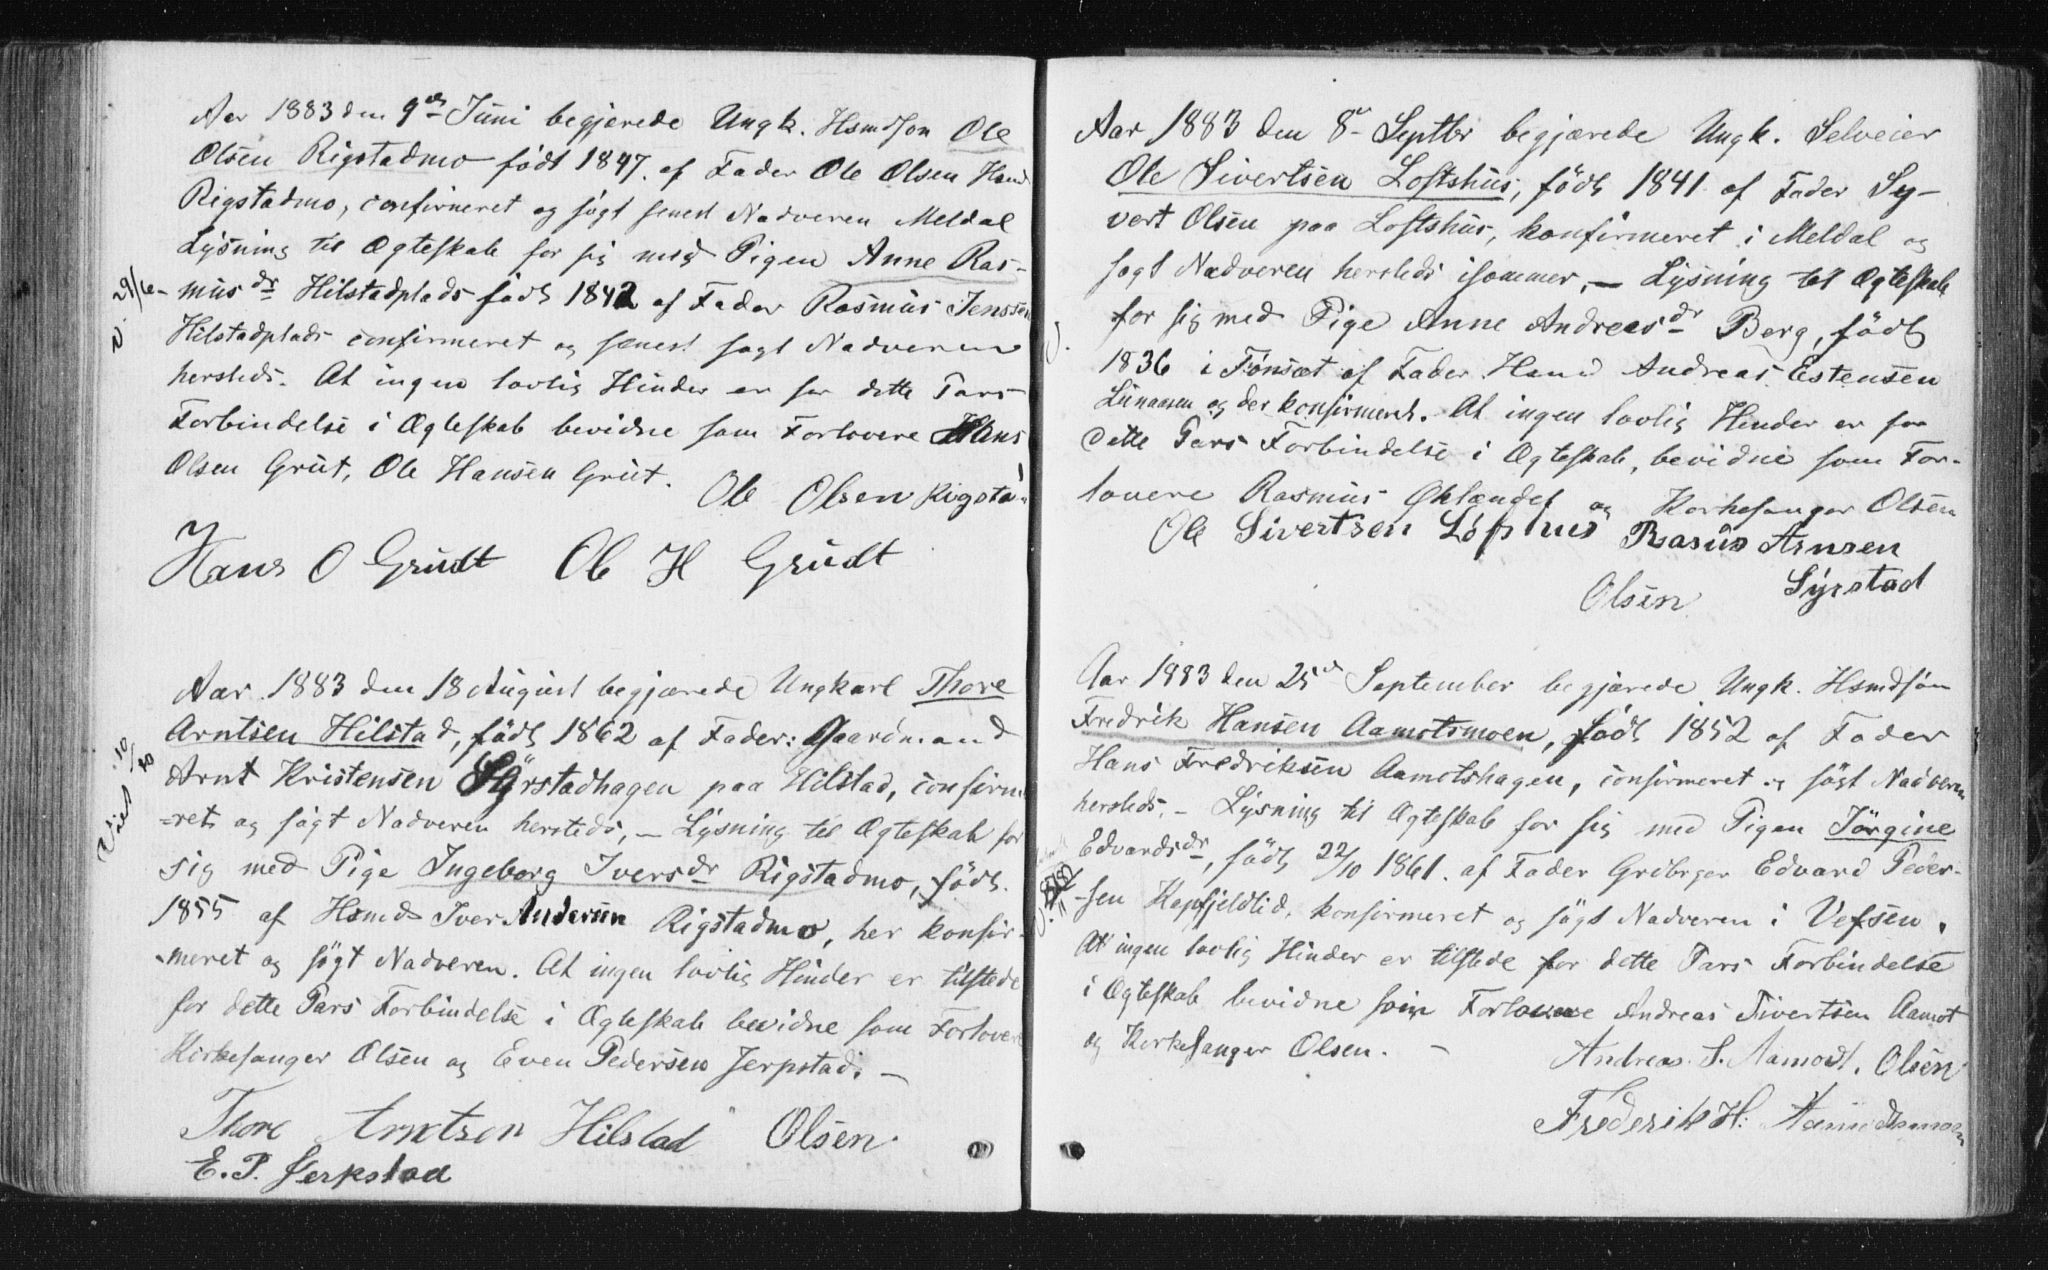 Aar 1883 den 9de Juni begjærede Ungk. Hsmdsøn Ole
Olsen Rigstadmo født 1847. af Fader Ole Olsen Hsmd
Rigstadmo, confirmeret og søgt senest Nadveren Meldal
Lysning til Ægteskab for sig med Pigen Anne Ras-
v. 29/6
musdr Hilstadplads født 1842 af Fader Rasmus Jenssen
Hilstadplads confirmeret og senest søgt Nadveren
hersteds. At ingen lovlig Hinder er for dette Pars
Forbindelse i Ægteskab bevidne som Forlovere Hans
Olsen Grut, Ole Hansen Grut.
Ole Olsen Rigsta
Hans O Grudt Ole H Grudt
Aar 1883 den 18 August begjærede Ungkarl Thore
Arntsen Hilstad, født 1862 af Fader: Gaardmand
Viet 10/10
Arnt Kristensen Syrstadhagen paa Hilstad, confirme
=ret og søgt Nadveren hersteds, — Lysning til Ægteskab for
sig med Pige Ingeborg Iversdr Rigstadmo, født
1855 af Hsmd Iver Andersen Rigstadmo, her konfir-
meret og søgt Nadveren. At ingen lovlig Hinder er tilstede
for dette Pars Forbindelse i Ægteskab bevidne som Forlovere
Kirkesanger Olsen og Even Pedersen Jerpstad. —
Thore Arntsen Hilstad Olsen.
E. P. Jerpstad
Aar 1883 den 8de Septbr begjærede Ungk. Selveier
Ole Sivertsen Loftshus, født 1841 af Fader Sy-
vert Olsen paa Loftshus, konfirmeret i Meldal og
søgt Nadveren hersteds isommer, — Lysning til Ægteskab
for sig med Pige Anne Andreasdr Berg, født
1836 i Tønsæt af Fader Hsmd Andreas Estensen
Lunaasen og der konfirmeret. At ingen lovlig Hinder er for
dette Pars Forbindelse i Ægteskab, bevidne som For-
lovere Rasmus og Kirkesanger Olsen
Ole Sivertsen Løfshus Rasus Arnsen
Olsen Syrstad
Aar 1883 den 25de September begjærede Ungk. Hsmdsøn
Fredrik Hansen Aamotsmoen, født 1852 af Fader
Hans Fredriksen Aamotshagen, confirmeret og søgt Nadveren
hersteds. — Lysning til Ægteskab for sig med Pigen Jörgine
Edvardsdr, født 22/10 1861. af Fader Grdbrger Edvard Peder-
sen Kapfjeldlid, konfirmeret og søgt Nadveren i Vefsen.
At ingen lovlig Hinder er tilstede for dette Pars Forbindelse
i Ægteskab bevidne som Forlovere Andreas Sivertsen Aamot
og Kirkesanger Olsen. —
Andreas S. Aamodt. Olsen
Frederik H. Aamodtsmoen